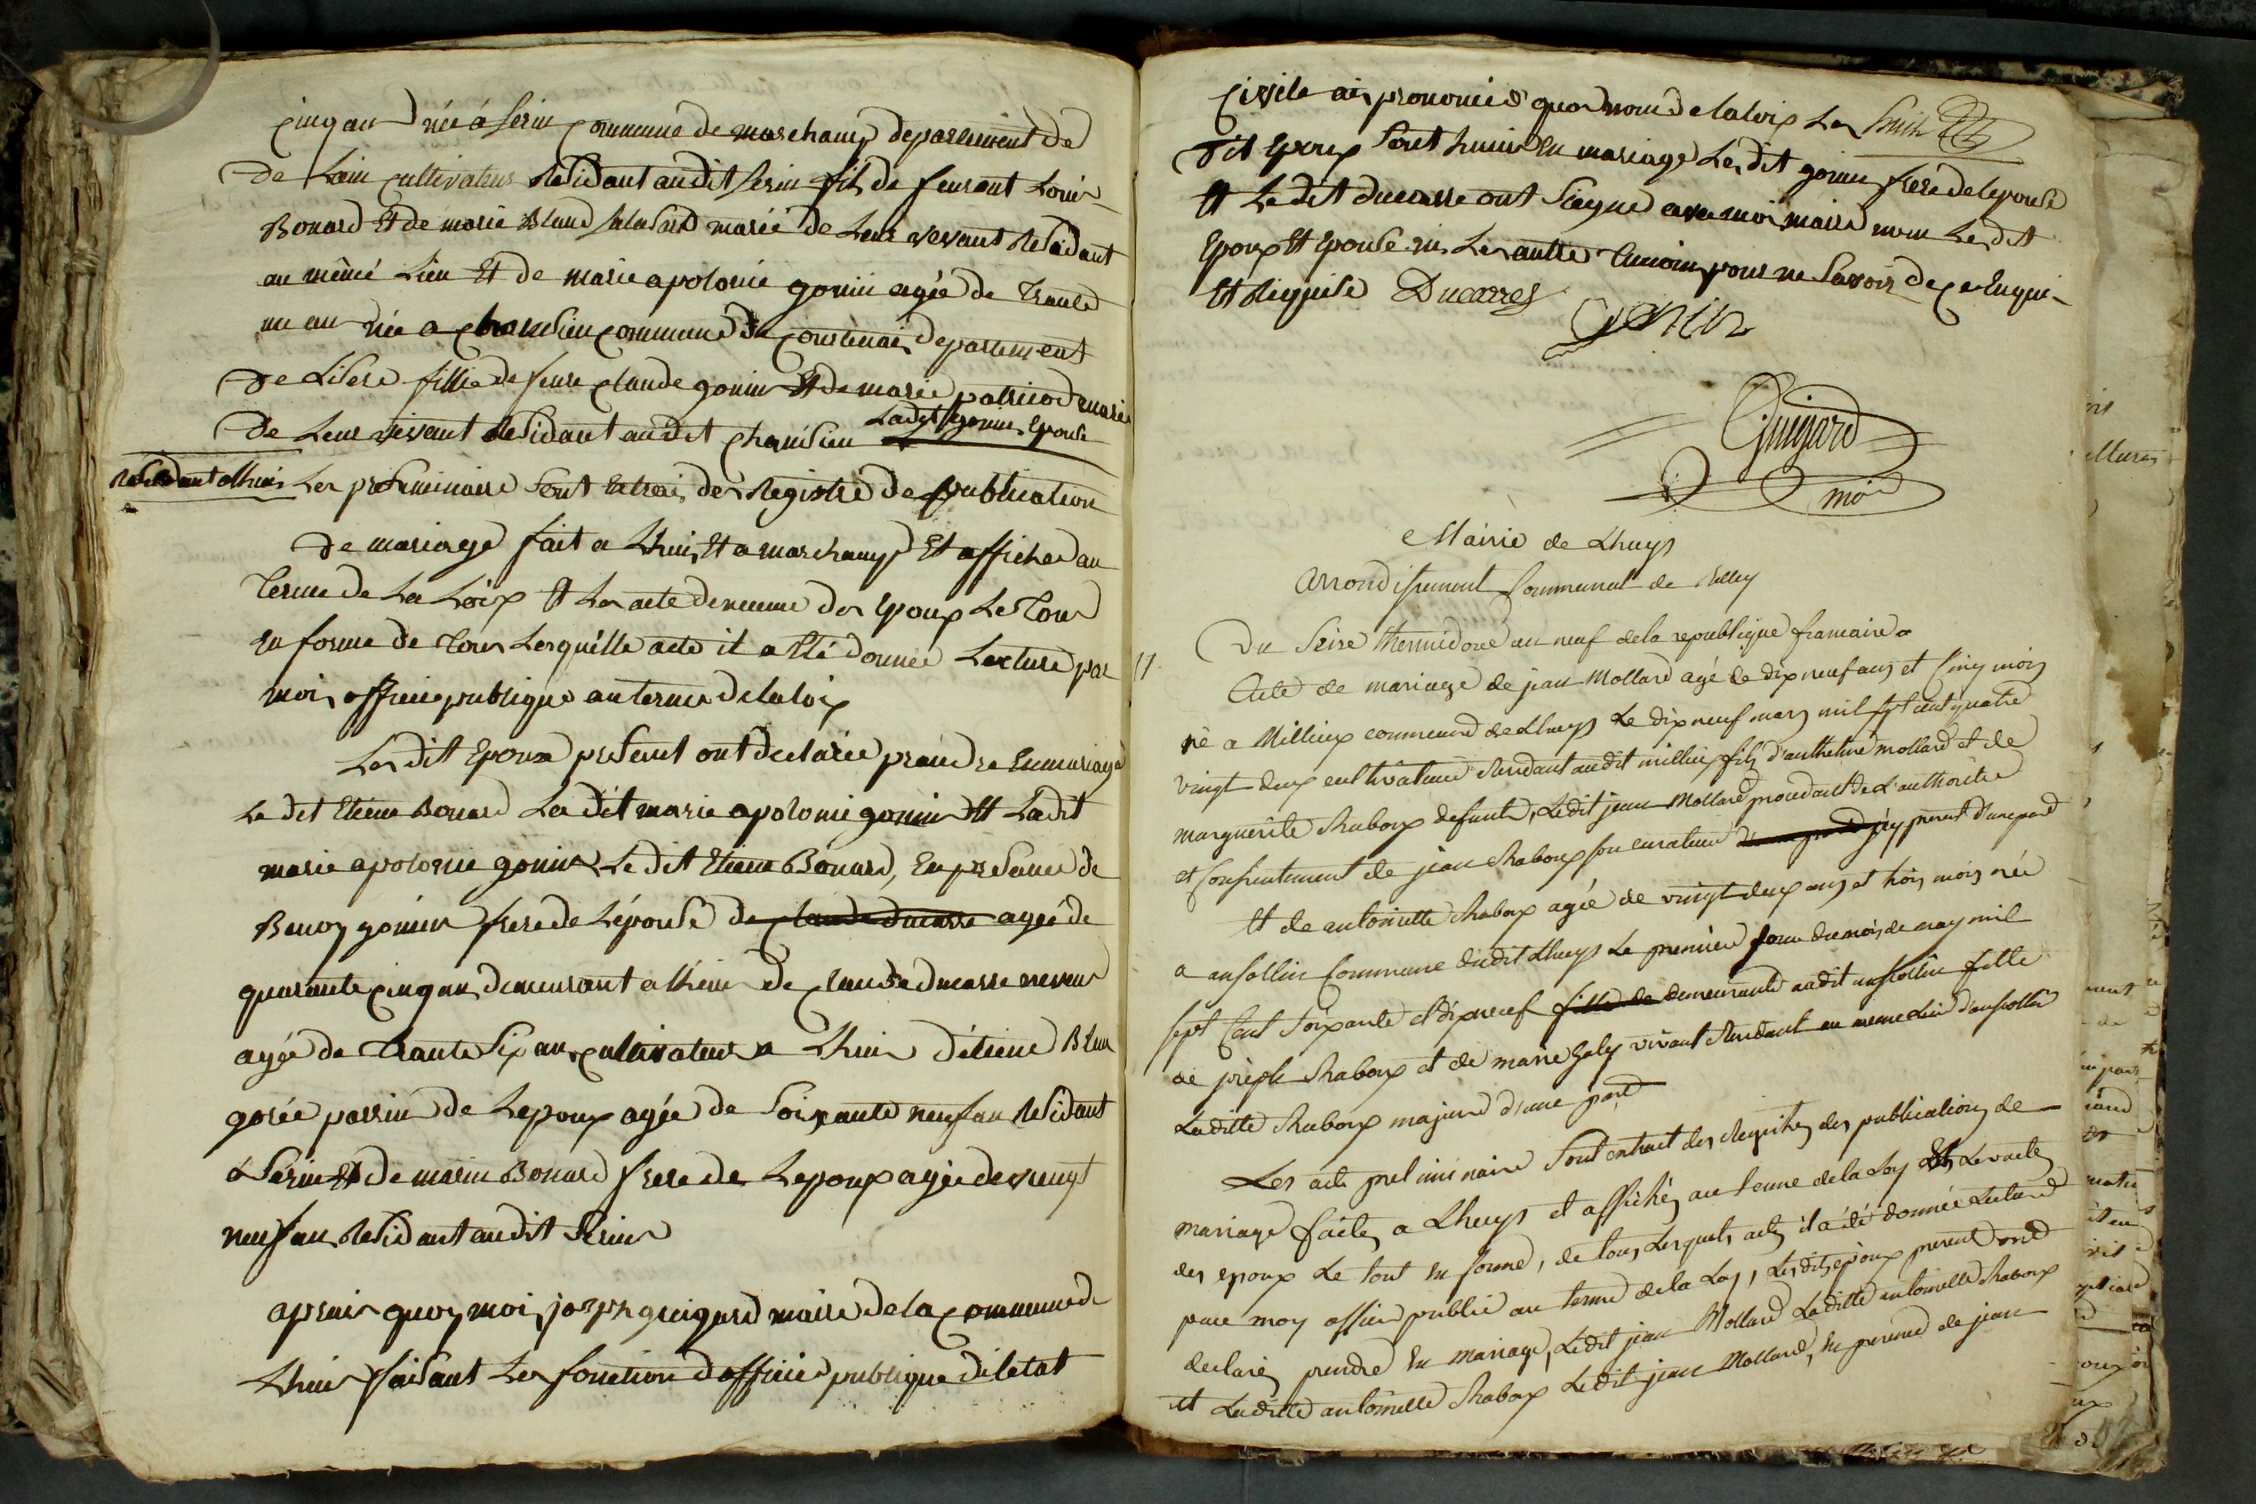 cinq an née á serin commune de marchamp departement de
de Lain cultivateur Residant audit serin fils de feu
Bonard Et de marie mariée de Leur vevant Residant
au mêmê Lieu Et de marie apolonie gonin agée de trante
un an née a commune de Courtenai departement
de Lisere fillie de feure claude gonin Et de marie marie
de Leur vevant Residant audit Chanisieu Ladit gonin Epouse
Residant a Lhuis Les preliminaire sont Extrai des Registre de publication
de mariage fait a Lhuis Et a marchamp Et affiches au
terme de La Loix Et Les acte de des Epoux Le tous
En forme de tous Lesquelle acte il a Eté donnée Lecture par
moi officie publique au terme de la loix
Les dit Epoux present ont declarée praindre En mariage
Le dit Etiene Bonard La dit marie apolonie gonin Et Ladit
marie apolonie gonin Le dit Etiene Bonard, En presance de
Benoy gonin frere de L'épouse de claude ducarre agée de
quarante cinq an demeurant a Lhuis de claude ducarre neveu
agée de trante six an cultivateur a Lhuis d'étiene
parrin de Lepoux agée de soixante neuf an Residant
a Serin Et de marin Bonard frere de Lepoux agée de vingt
neuf an Residant audit Serin
aprais quoy moi joseph guigard maire de la commune de
Lhuis faisant Les fonction d'officier publique de letat
Civile ai prononcé qu'au nom de la loix Les
dit Epoux sont hunis En mariage Les dit gonin frere de lepouse
Et Le dit ducarre ont Siegné avec moi maire non Les dit
Epoux Et Epouse ni Les autre temoins pour ne savoir de ce Enqui-
Et Requise Ducarres
Gonin
Guigard
mair
Mairie de Lhuys
arrondissement Communal de Belley
17
Du Seize thermidore an neuf de la republique francaise
Acte de mariage de jean Mollard agé de dix neuf ans et Cinq mois
né a Millieux commune de Lhuys Le dix neuf mars mil sept cent quatre
vingt deux cultivateur Residant audit millieux fils d'anthelme mollard et de
marguerite Raboux defunts, Ledit jean Mollard procedant de L'authorité
et Consentement de jean Raboux son curateur present d'une part
Et de antoinette Raboux agée de vingt deux ans et trois mois née
a ansollin Commune dudit Lhuys Le premier jour du mois de may mil
sept Cent soixante et dix neuf fille de demeurante audit ansollin fille
de joseph Raboux et de marie Galy vivant Residant au meme Lieu d'ansollin
Laditte Raboux majeure d'une part
Les acte preliminaire Sont extrait des Registres des publications de
mariage faites a Lhuys et affichés au terme de la Loy Et
des epoux Le tout en forme, de tous Lesquels actes il a été donnée Lecture
par moy officier public au terme de la Loy, Lesdits epoux present ont
declaré prendre en mariage, Ledit jean Mollard Laditte antoinette Raboux
et Laditte antoinette Raboux Ledit jean Mollard, en presence de jean